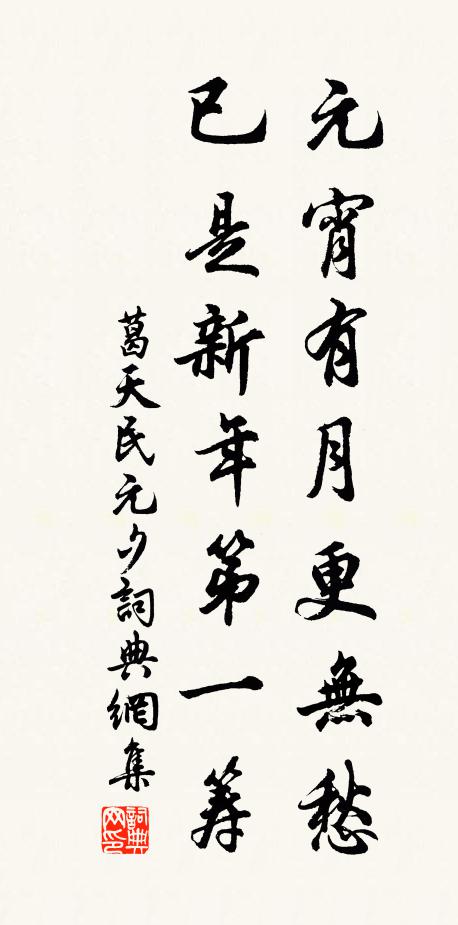 元宵有月更無愁
已是新年第一籌
葛天民元夕詞典網集
詞典网印